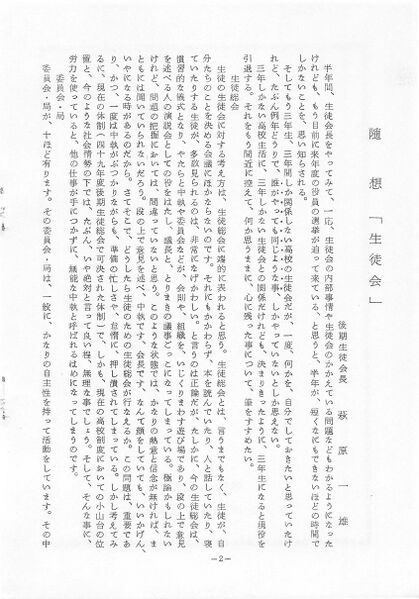 随想「生徒会」
後期生徒会長 萩原一雄
半年間、生徒会長をやってみて、一応、生徒会の内部事情や生徒会のかかえている問題などもわかるようになった
けれども、もう目前に来年度の役員の選挙が迫って来ている、と思うと、半年が、短くなにもできないほどの時間で
しかないことを、思い知らされる。
そしてもう三年生、三年間しか関係しない高校の生徒会だが、一度、何かを、自分でしておきたいと思っていたけ
れど、たぶん例年どうりで、誰がやっても同じような事しかやっていないとしか思えない。
三年しかない高校生活に、三年しかない生徒会との関係だけれども、決まりきったように、三年生になると現役を
引退する。それをもう間近に控えて、何か思うままに、心に残った事について、筆をすすめたい。
生徒総会
生徒の生徒会に対する考え方は、生徒総会に端的に表われると思う。生徒総会とは、言うまでもなく、生徒が、自
分たちのことを決める会議にほかならないのです。それにもかかわらず、本を読んでいたり、人と話していたり、寝
ていたりする生徒が、多数見られるのは、非常になげかわしい。と言うのは正論だが、たしかに、今の生徒総会は、
慣習的な儀式となり、やたらと中執や委員会などが、会則や、組織を、いじくりまわす遊び場であり、段の上で意見
を述べる人の演説会としての役をはたし、議長と、とりまきの議事ごっことなってしまっている。極論かもしれない
けれど、問題の把握においては、間違っていないと思う。このような状態では、かなりの熱意と信念が無ければ、ま
ともには聞いていられないだろう。段の上で意見を述べ、中執です、会長です、なんて顔をしていても、いいかげん、
いやになる時があるのだから。さてそこで、どうしたら生徒のための生徒総会が行なえるか。この問題は、重要であ
り、かつ、一度は中執がぶつかりながらも、準備の忙しさや、怠惰に、押し潰されてしまっている。しかし考えてみ
るに、現在の体制(四十九年度後期生徒総会で可決された体制)で、しかも、現在の高校制度においての小山台の位
置と、今のような社会情勢の下では、たぶん、いや絶対と言って良い程、無理な事でしょう。そして、そんな事に、
労力を使っていると、他の仕事が手につかずに、無能な中執と呼ばれるはめになってしまうのです。
委員会・局
委員会・局が、十ほど有ります。その委員会・局は、一般に、かなりの自主性を持って活動をしています。その中
—2—